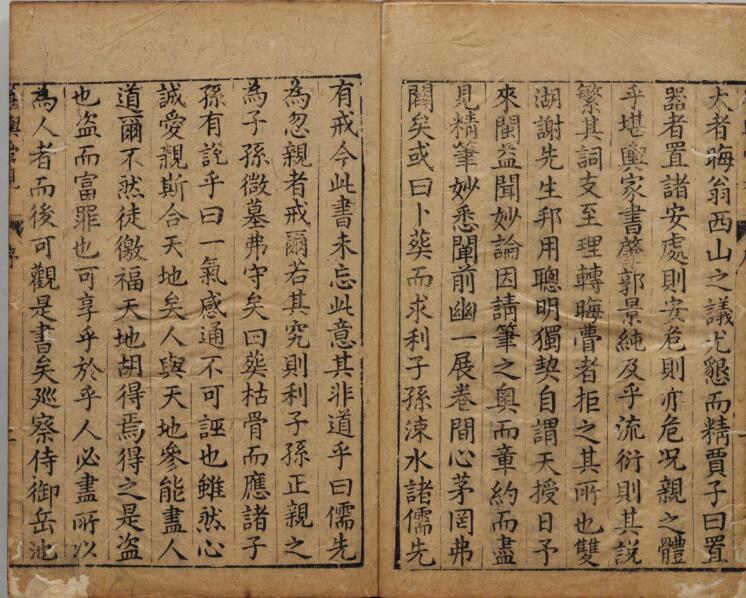 大者晦翁西山之議尤懇而精賈子曰置
器者置諸安處則安危則亦危况親之體
乎堪輿家書肇郭景純及乎流衍則其説
繁其詞支至理轉晦瞢者拒之其所也雙
湖謝先生邦用聰明獨契自謂天授日予
來閩益聞妙論因請筆之奥而章約而盡
見精筆妙悉闡前幽一展卷間心茅罔弗
闢矣或曰卜葬而求利子孫涑水諸儒先
有戒今此書未忘此意其非道乎曰儒先
為忽親者戒爾若其究則利子孫正親之
為子孫微墓弗守矣曰葬枯骨而應諸子
孫有説乎曰一氣感通不可誣也雖然心
誠愛親斯合天地矣人與天地參能盡人
道爾不然徒徼福天地胡得焉得之是盗
也盗而富罪也可享乎於乎人必盡所以
為人者而後可觀是書矣廵察侍御岳池
序